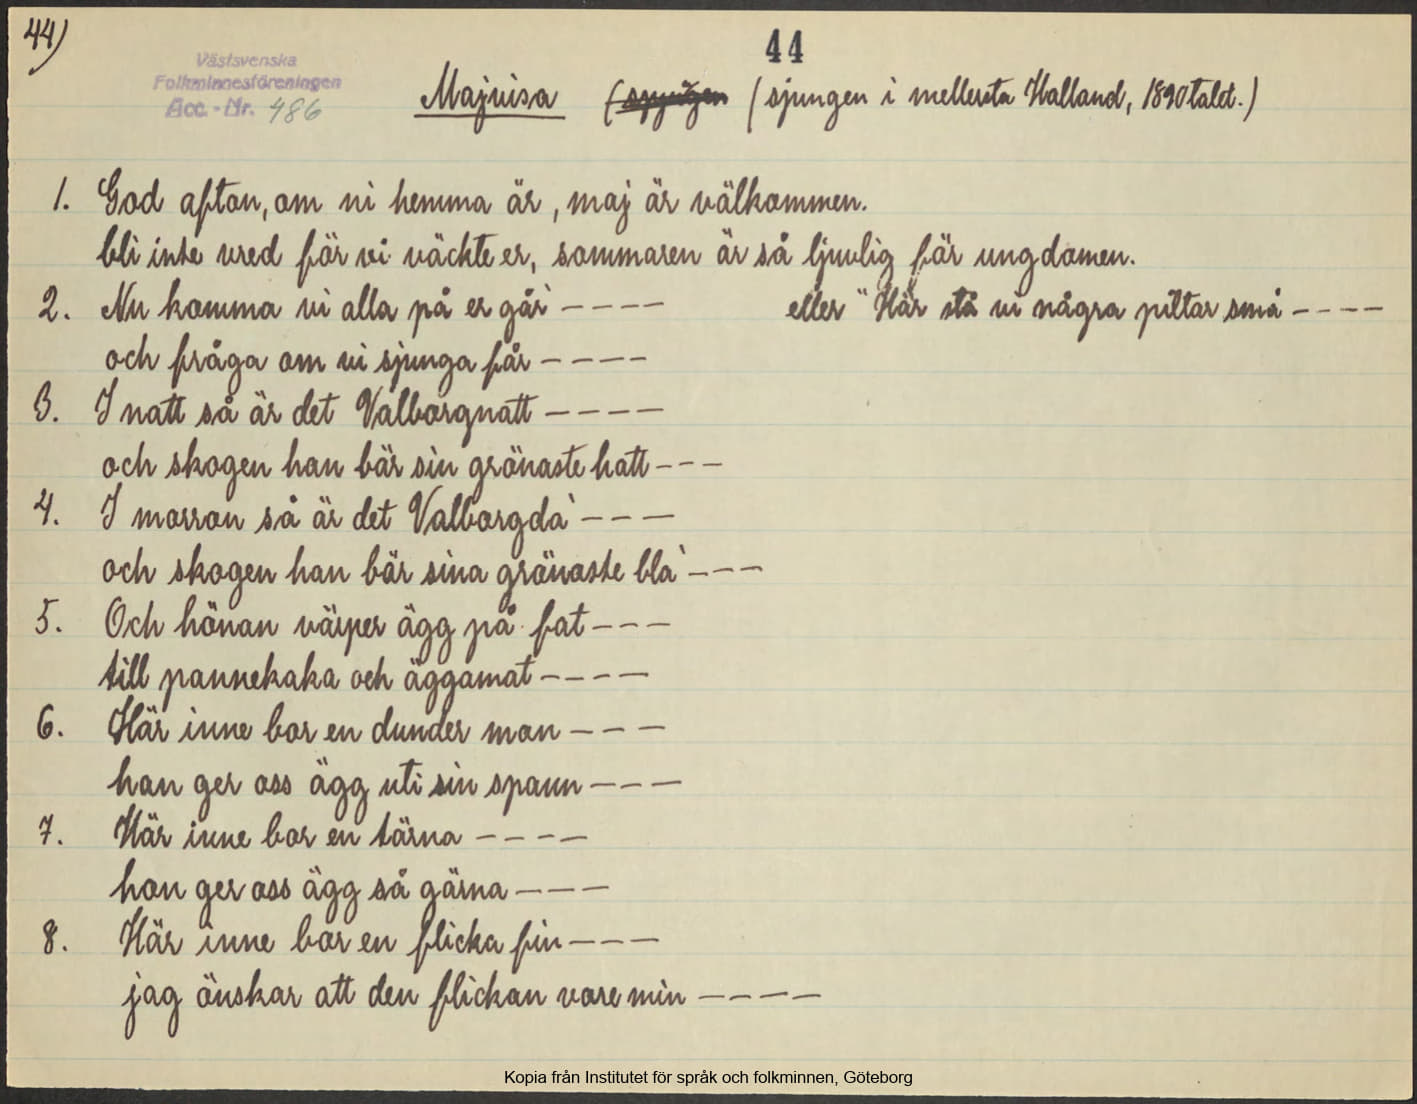 44)
44
Västsvenska
Folkminnesföreningen
Acc.-Nr. 486
Majvisa ( (sjungen i mellersta Halland, 1890talet.)
1. God afton, om ni hemma är, maj är välkommen.
bli inte vred för vi väckte er, sommaren är så ljuvlig för ungdomen.
2. Nu komma vi alla på er går' ---- eller "Här stå vi några piltar små ----
och fråga om vi sjunga får ----
3. I natt så är det Valborgnatt ----
och skogen han bär sin grönaste hatt ---
4. I morron så är det Valborgda' ---
och skogen han bär sina grönaste bla' ---
5. Och hönan värper ägg på fat ---
till pannekaka och äggamat ----
6. Här inne bor en dunder man ---
han ger oss ägg uti sin spann ---
7. Här inne bor en tärna ----
hon ger oss ägg så gärna ---
8. Här inne bor en flicka fin ---
jag önskar att den flickan vore min ----
Kopia från Institutet för språk och folkminnen, Göteborg